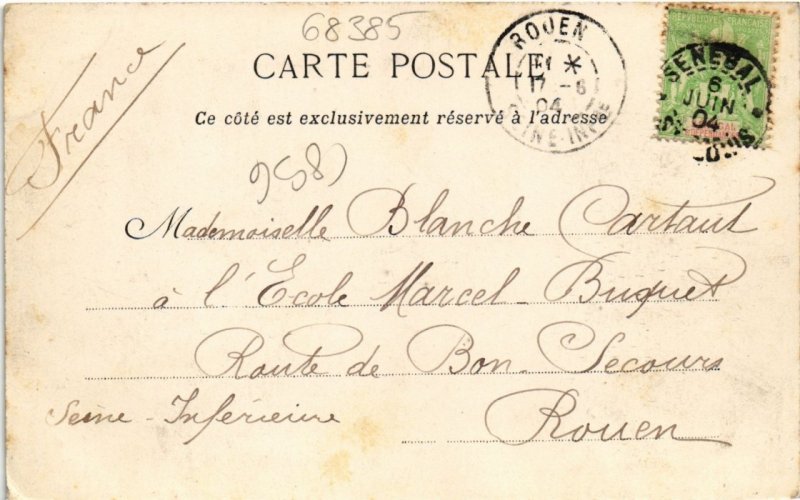 68385
France
CARTE POSTALE
Ce côté est exclusivement réservé à l'adresse
ROUEN
17 - 6
04
SEINE-INFRE
RÉPUBLIQUE FRANÇAISE
SENEGAL
6
JUIN
04
ST LOUIS
958)
Mademoiselle Blanche Cartaut
à l'École Marcel-Buquet
Route de Bon-Secours
Seine-Inférieure
Rouen